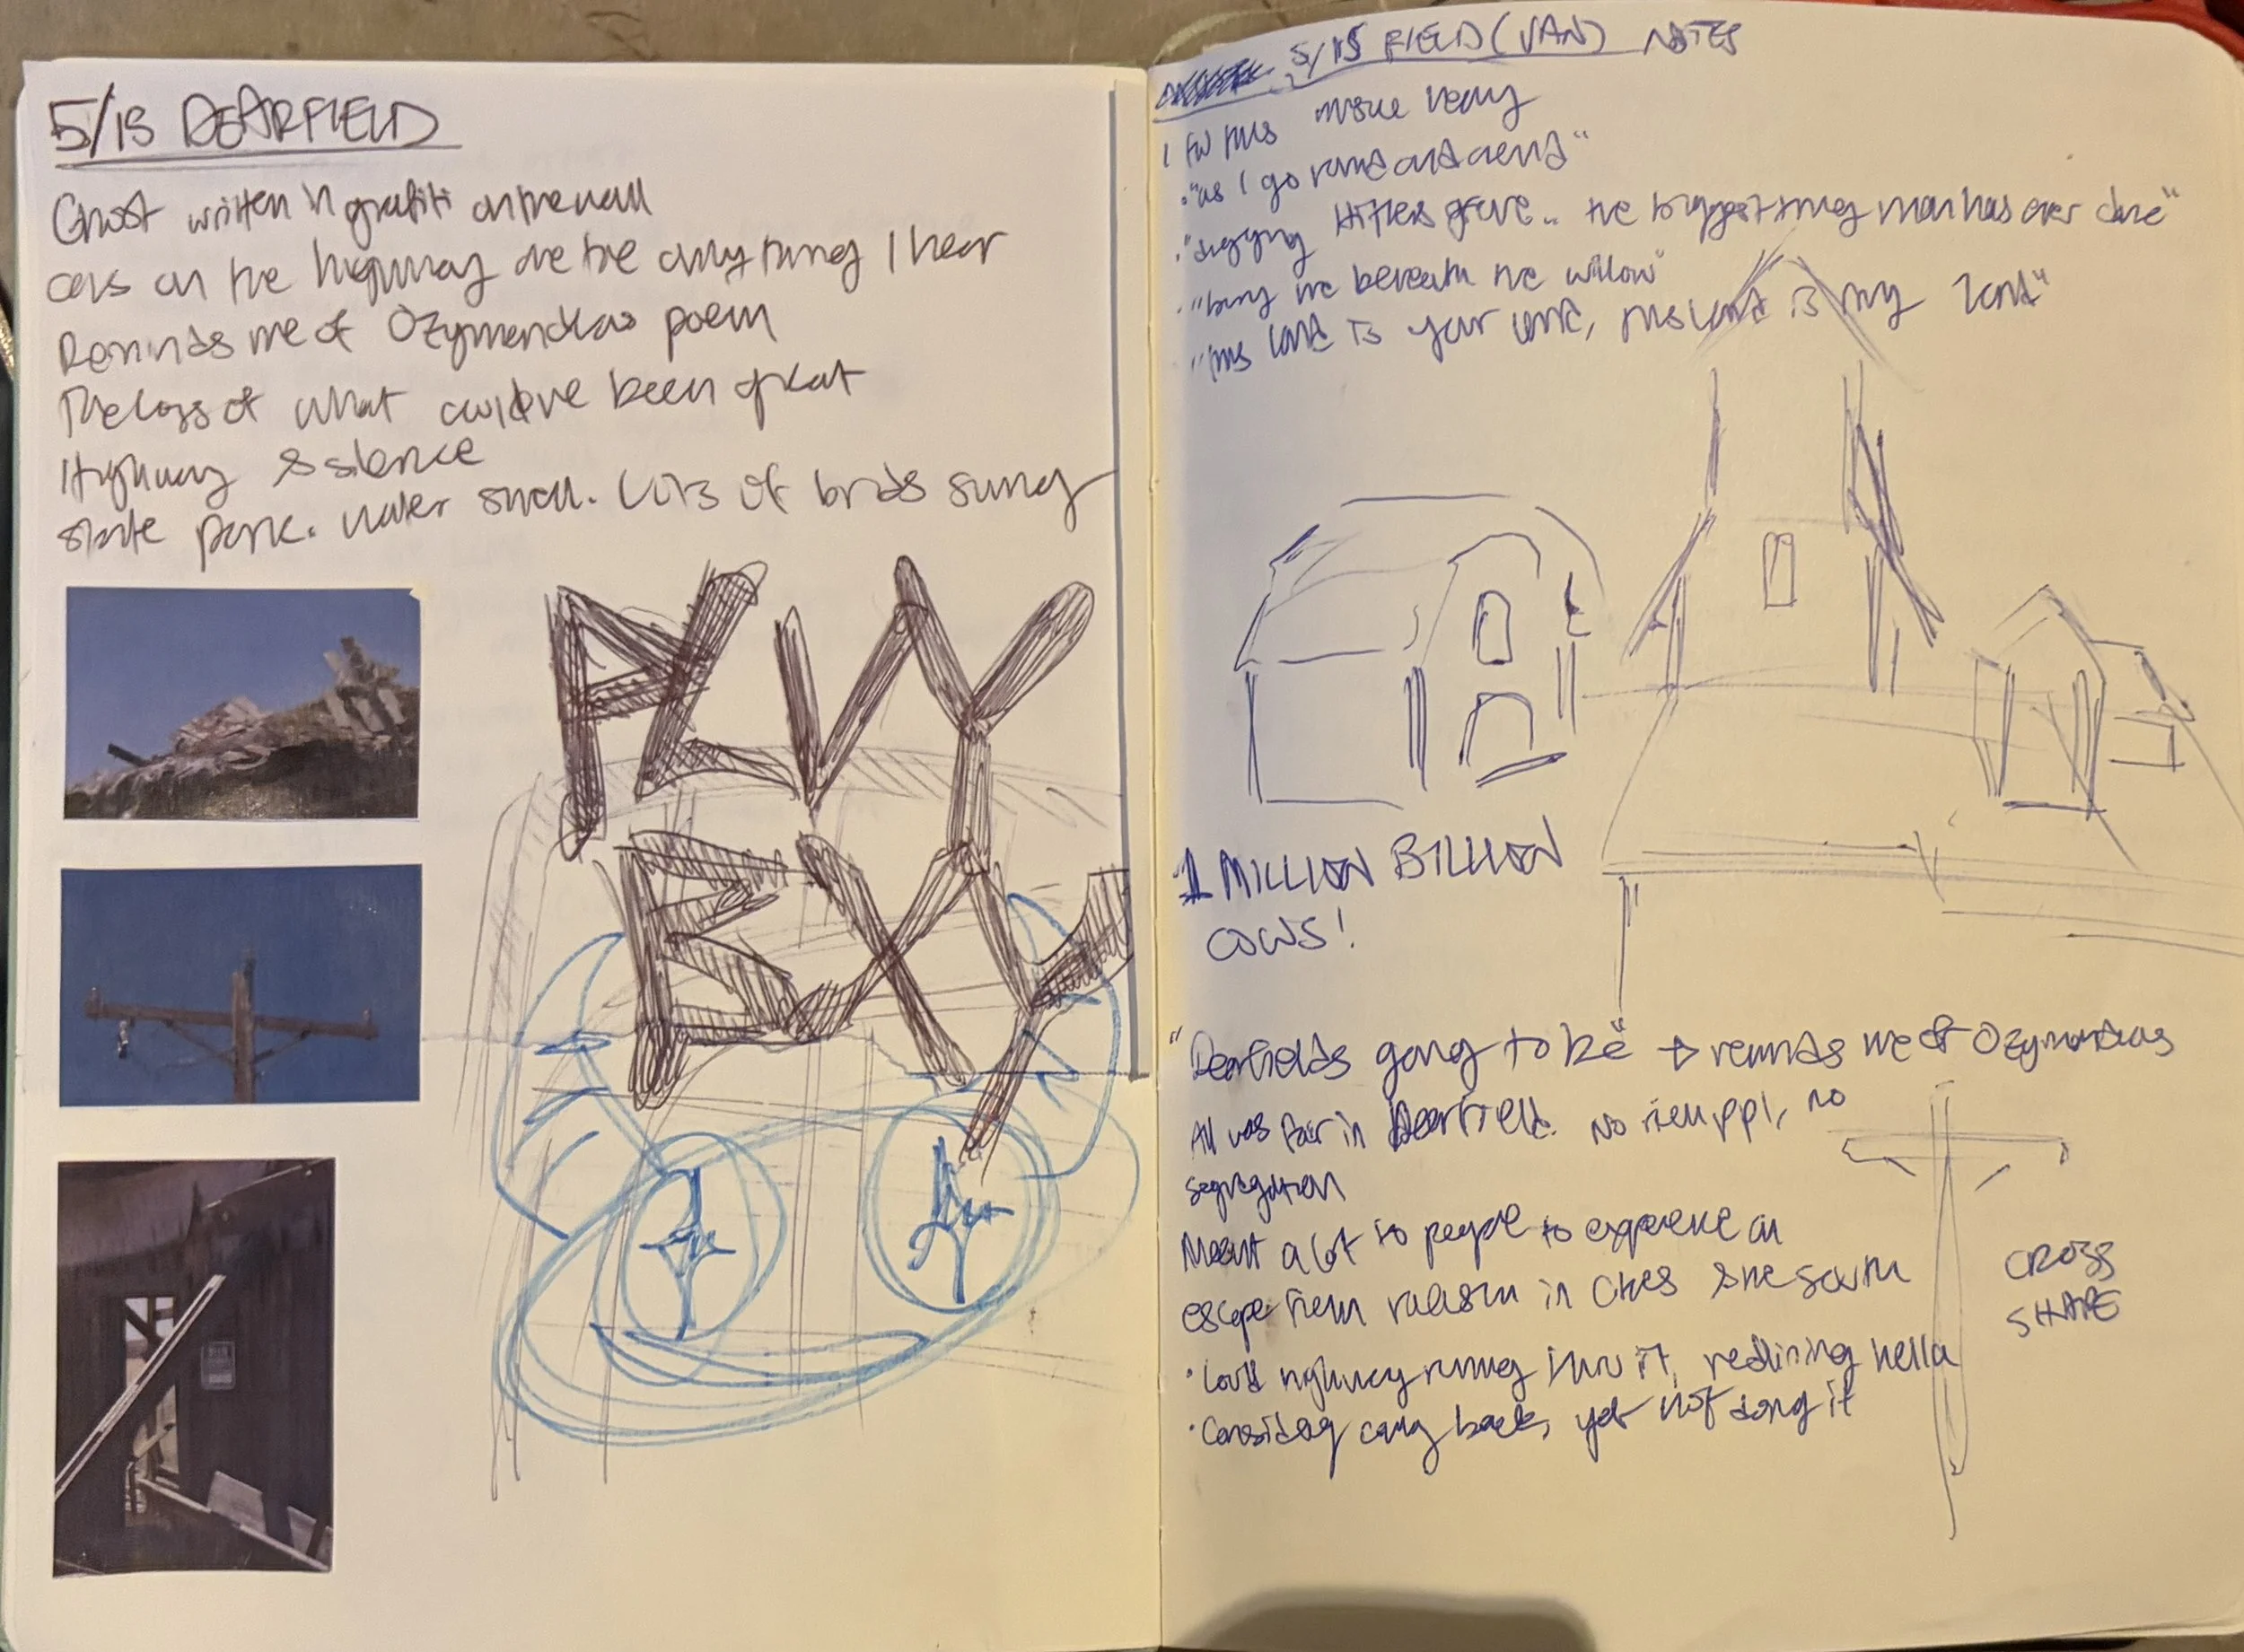 5/15 DEARFIELD
Ghost written in grafiti on the wall
cars on the highway are the only thing I hear
Reminds me of Ozymandias poem
The loss of what could've been great
Highway & silence
state park. water smell. Lots of birds
5/15 FIELD (VAN) NOTES
"as I go round and round"
"digging Hitlers grave.. the biggest thing man has ever done"
"bury me beneath the willow"
"this land is your land, this land is my land"
1 MILLION BILLION
COWS!
"Dearfields going to be" → reminds me of Ozymandias
All was fair in Dearfield. No ppl, no
segregation
Meant a lot to people to experience an
escape from racism in cities & the south
CROSS
SHAPE
• Loud highway running thru it, redlining hella
• Considering coming back, yet not doing it